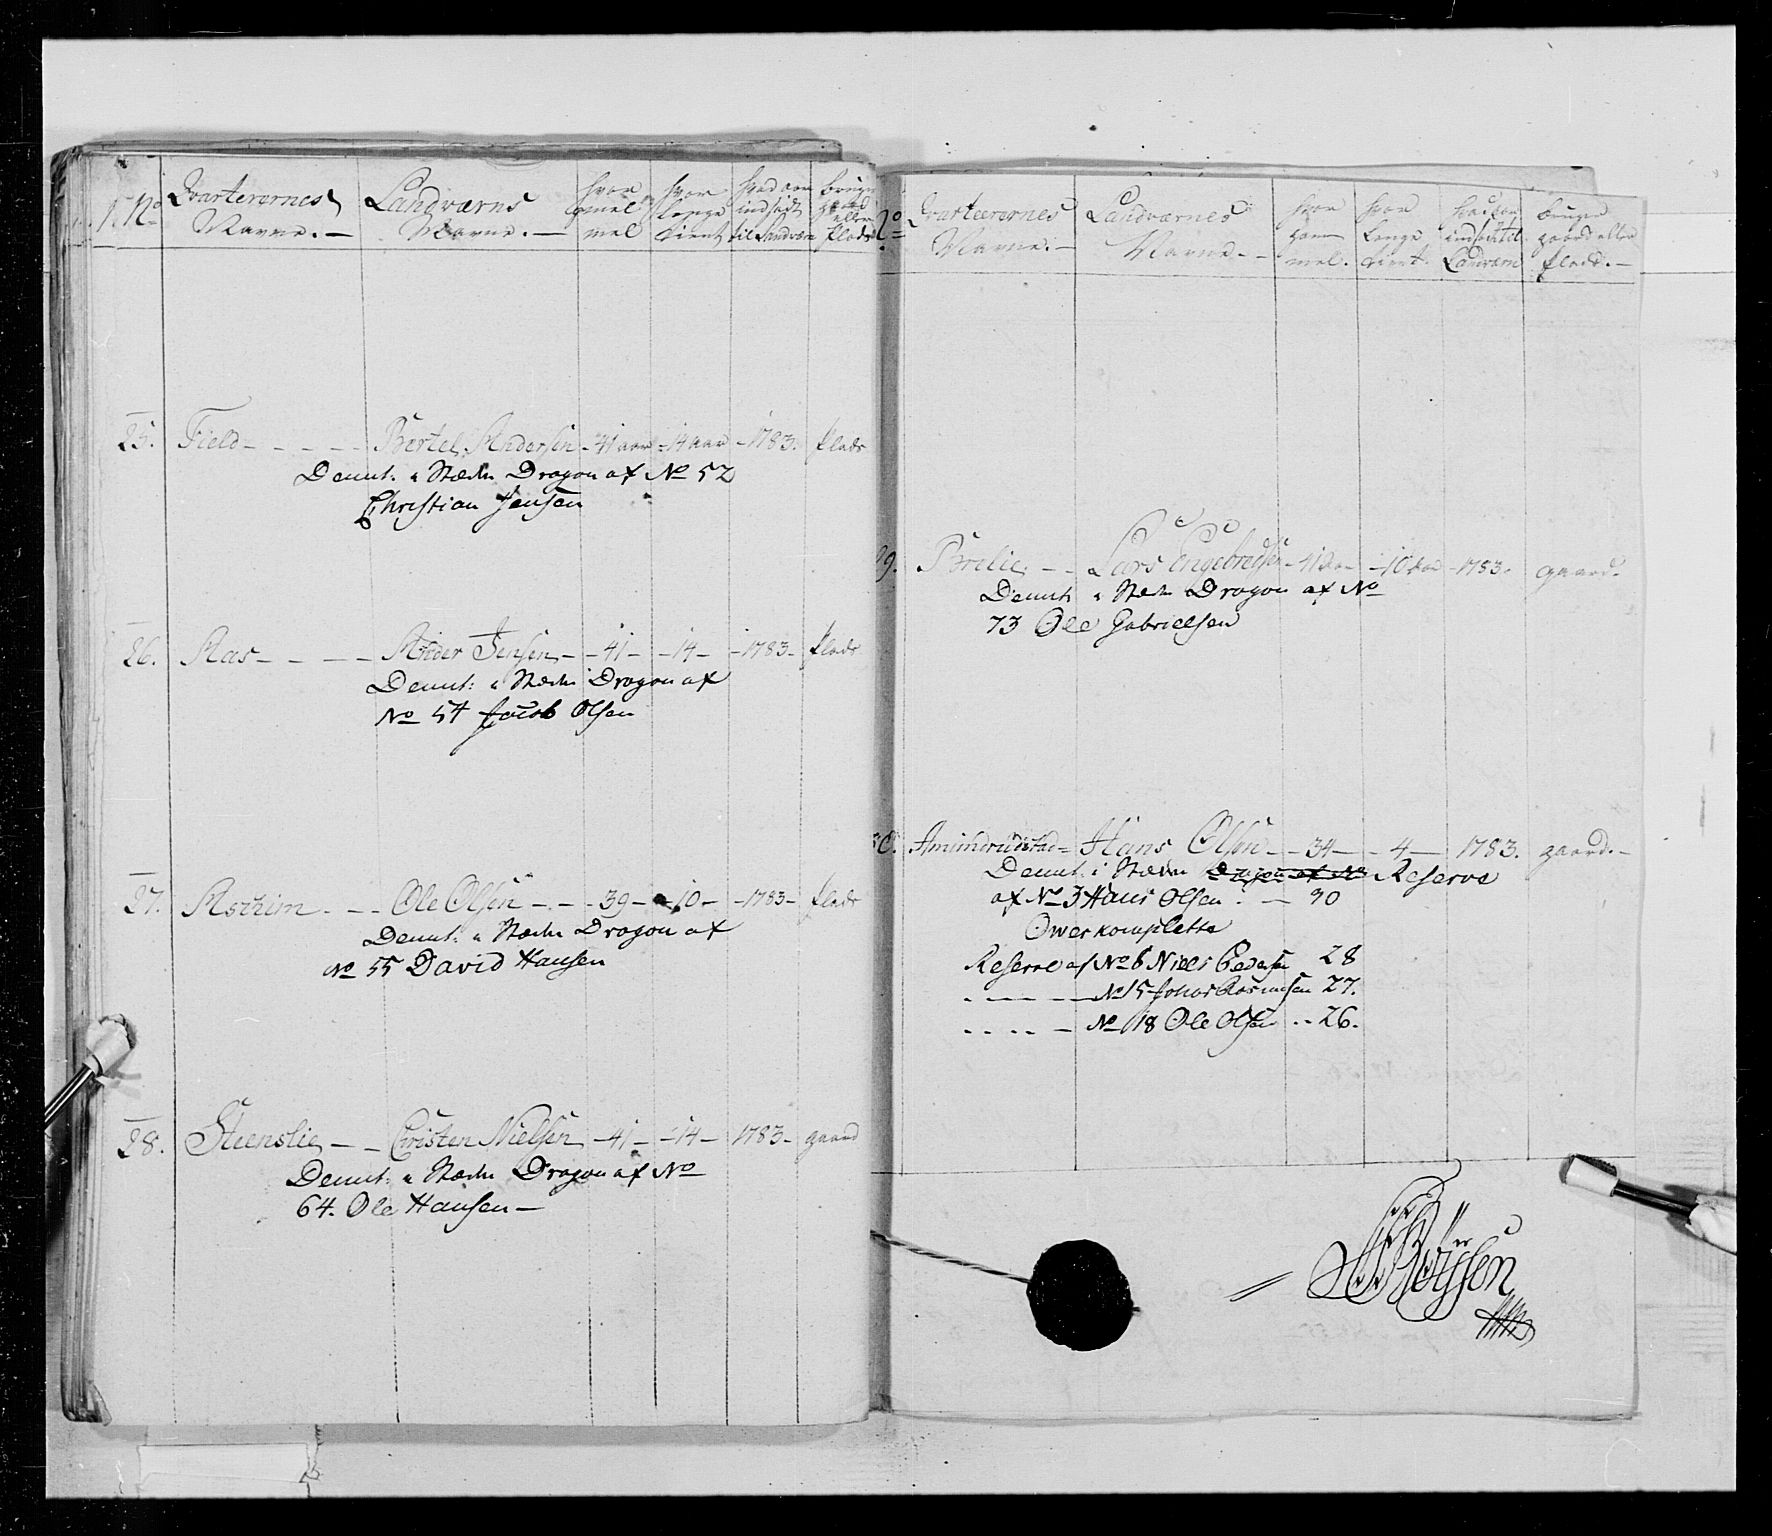 No
Qvarterernes Navne. —
Landværns Navne. —
hvor gmel
hvor lenge tient
hvad aar indsadt til Landværn
bruger gaard eller plads
25. Field - - - - Bertel Andersen - 41 aar - 14 aar - 1783. plads
Deent: i Stæden Dragon af No 52
Christian Jensen
26. Aas - - - - Ander Jensen - - 41 - - 14 - - 1783 - plads
Deent: i Stæden Dragon af
No 54 Jacob Olsen
27. Aschim - - - Ole Olsen - - - 39 - - 10 - - 1783 - plads
Deent: i Stæden Dragon af
No 55 David Hansen
28. Steenslie - - Christen Nielsen - 41 - - 14 - 1783 - gaard
Deent: i Stæden Dragon af No
64. Ole Hansen —
No
Qvarteerernes Navne. —
Landværnes Navne. -
hvor gam mel.
hvor lenge tient.
hvad aar indsadt til Landværn
bruger gaard eller plads. —
29. Brelie - - Lars Engebredsen - 41 aar - 10 aar - 1783. gaard.
Deent: i Stæden Dragon af No
73 Ole Gabrielsen
30. Amundrudstad - Hans Olsen - - 34 - - 4 - 1783. gaard. -
Deent: i Stæden Dragon af No Reserve
af No 3 Hans Olsen . — 30
Owerkomplette
Reserve af No 6 Niels Pedersen 28
- - - - No 15 Johas Rasmusen 27.
- - - - No 18 Ole Olsen - - 26.